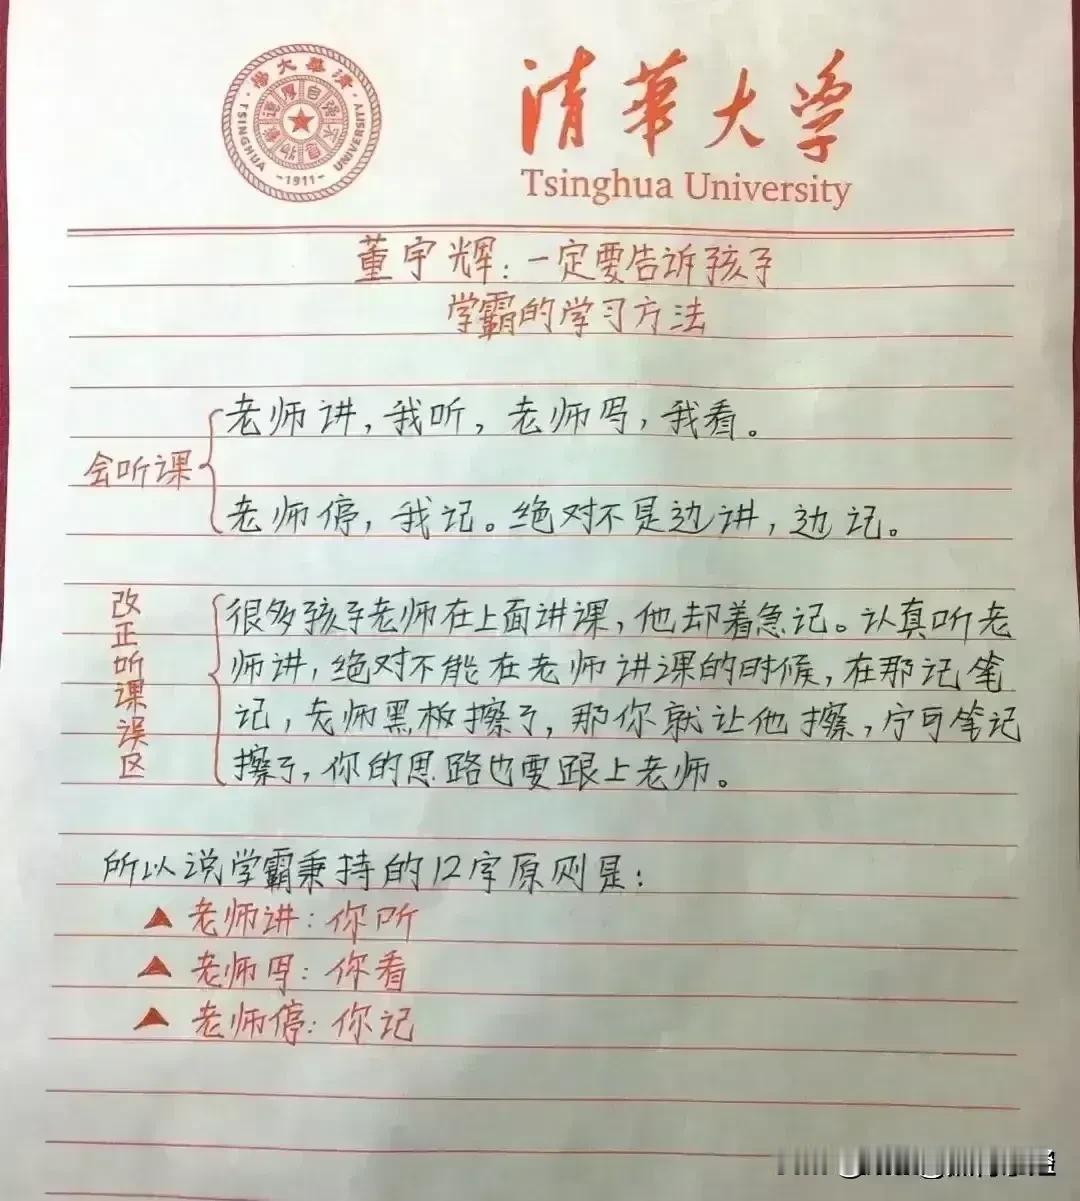 清華大学
Tsinghua University
TSINGHUA UNIVERSITY
-1911-
董宇辉：一定要告诉孩子
学霸的学习方法
会听课
老师讲，我听，老师写，我看。
老师停，我记。绝对不是边讲，边记。
改正听课误区
很多孩子老师在上面讲课，他却着急记。认真听老
师讲，绝对不能在老师讲课的时候，在那记笔
记，老师黑板擦了，那你就让他擦，宁可笔记
擦了，你的思路也要跟上老师。
所以说学霸秉持的12字原则是：
▲ 老师讲：你听
▲ 老师写：你看
▲ 老师停：你记